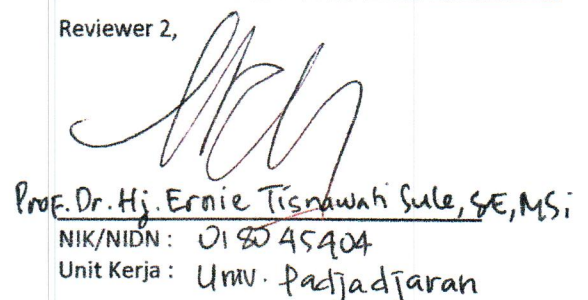 Reviewer 2,
Prof. Dr. Hj. Ernie Tisnawati Sule, SE, MSi
NIK/NIDN : 018045904
Unit Kerja : Univ. Padjadjaran